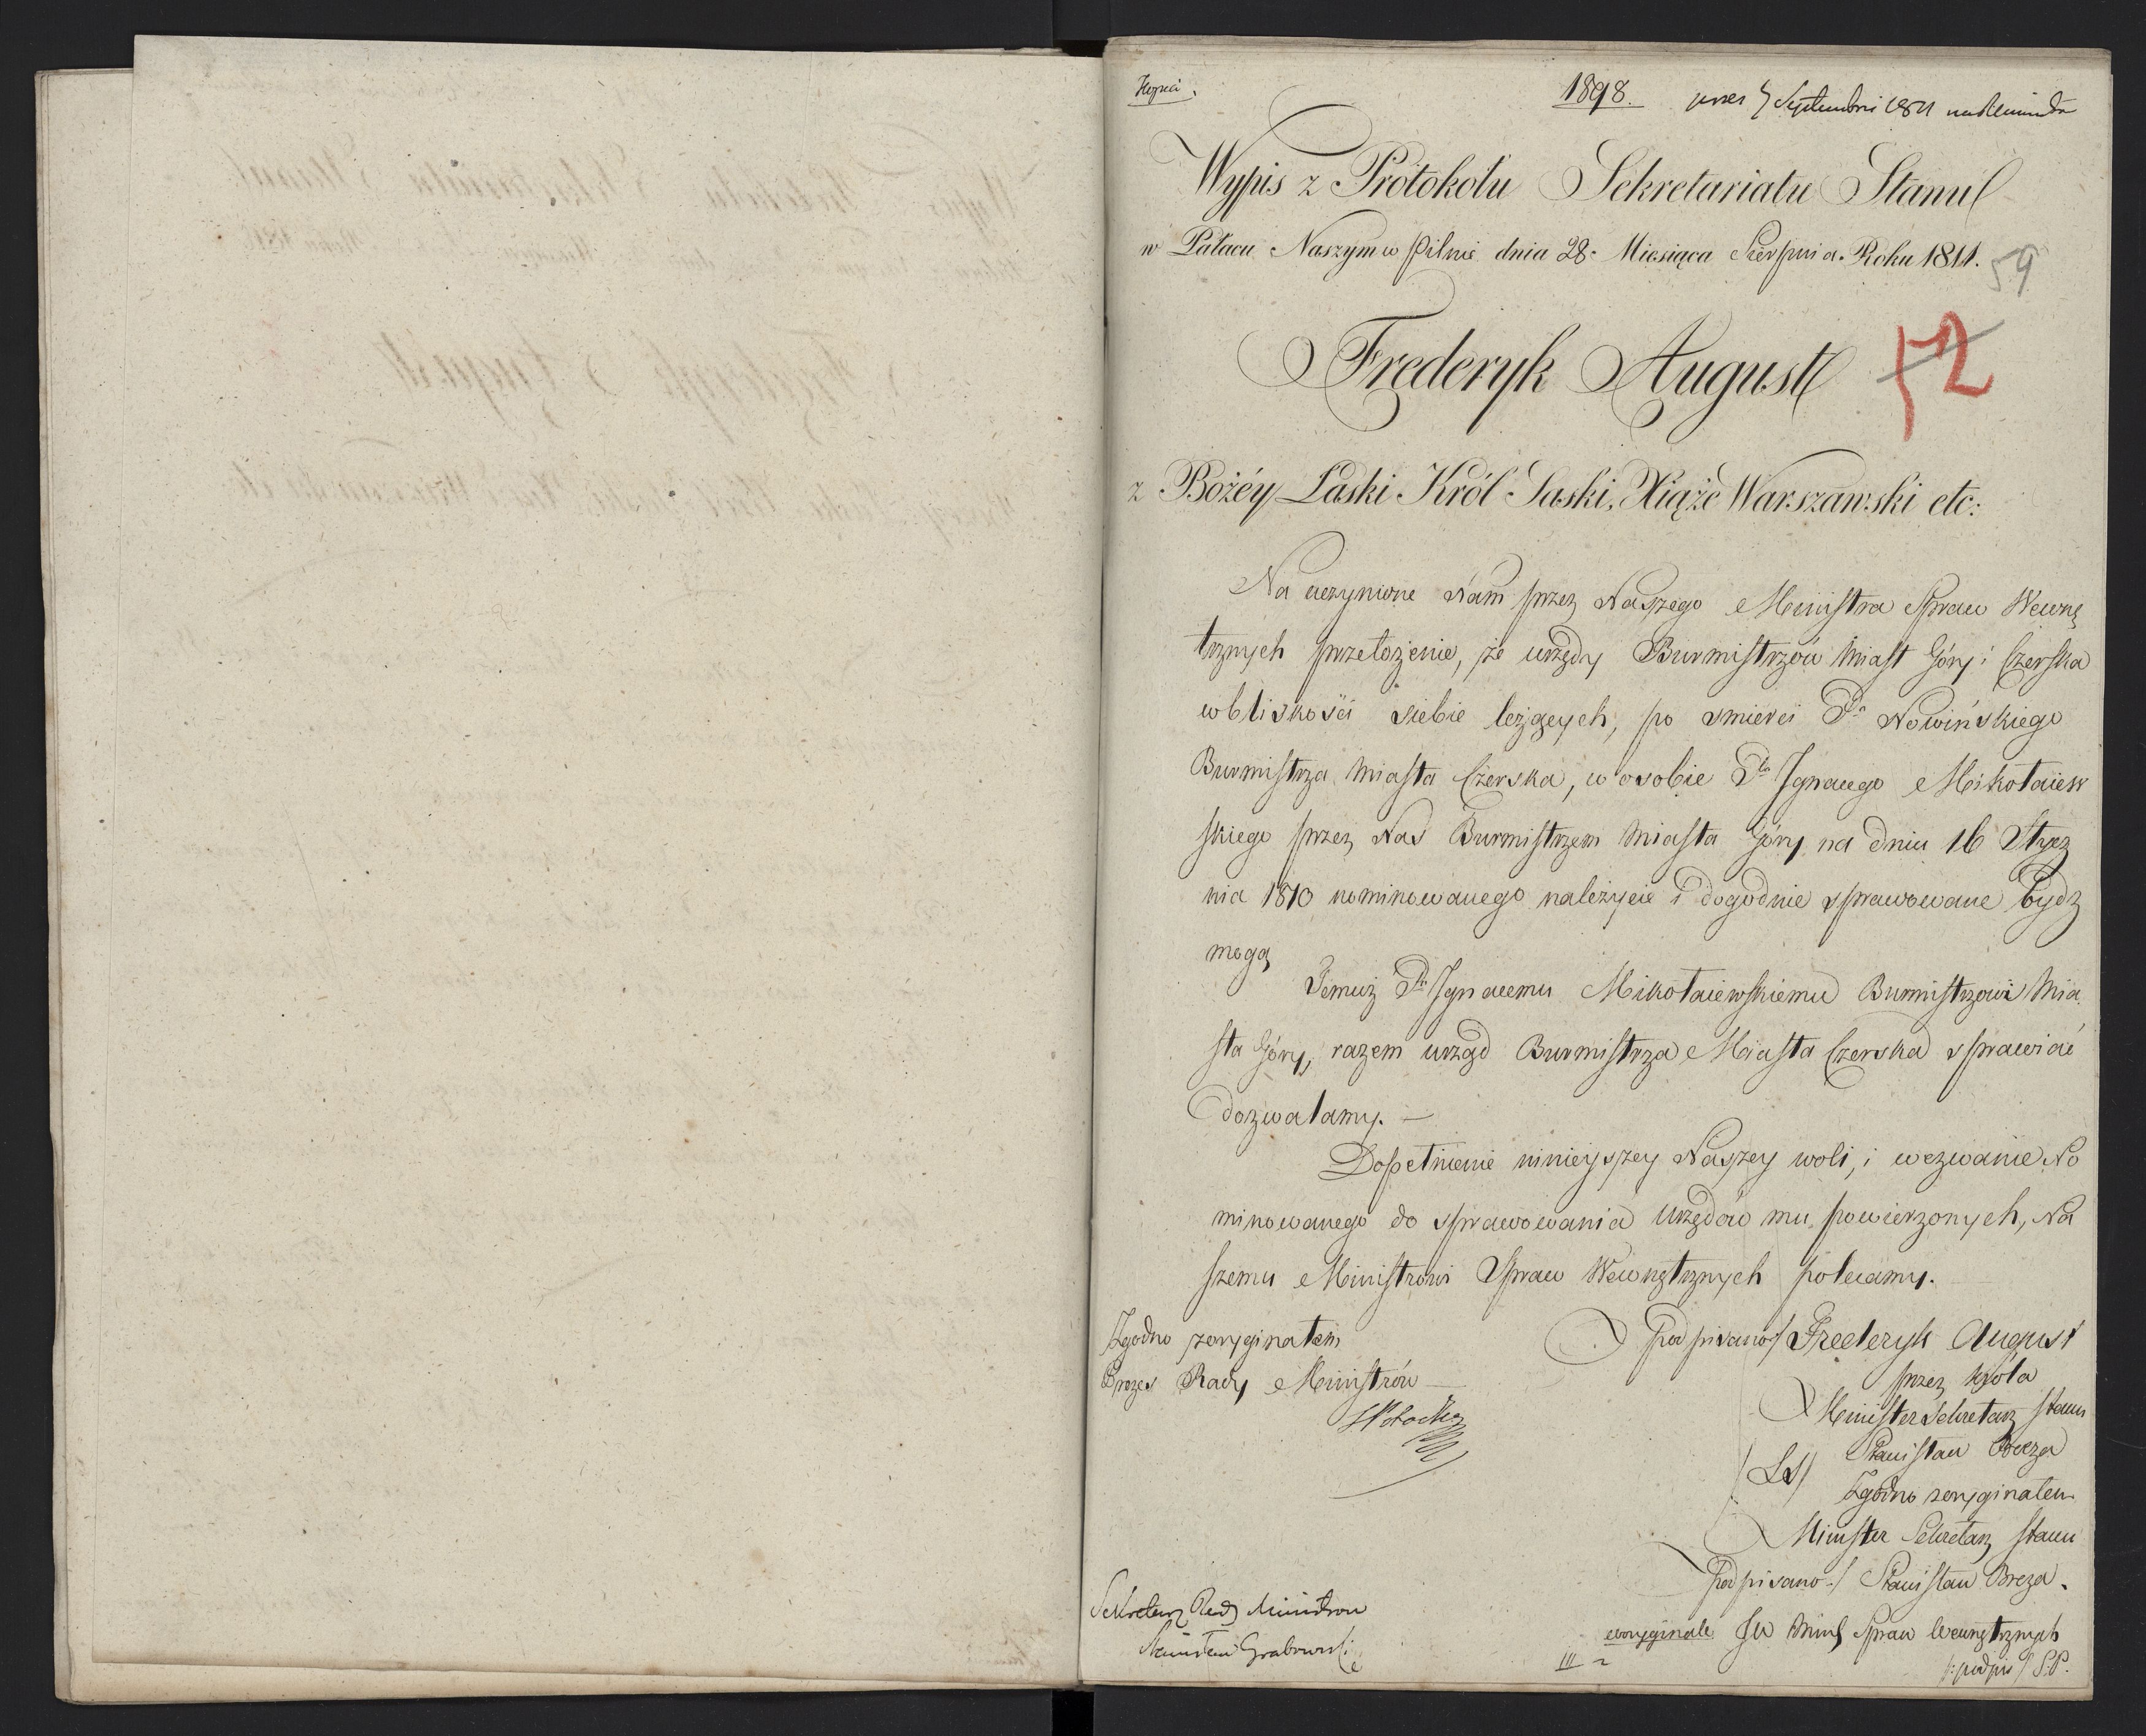 Kopia.
1898. 7 Septembri 1811
Wypis z Protokołu Sekretariatu Stanu
w Pałacu Naszym w Pilnie dnia 28. Miesiąca Sierpnia. Roku 1811.
59
Frederyk August
52
z Bożéy Łaski Król Saski, Xiąże Warszawski etc:
Na uczynione Nám przez Naszego Ministra Spraw Wewnę
trznych przełożenie, że urzędy Burmistrzów Miast Góry i Czerska
w bliskości siebie leżących, po smierci Pa Nowińskiego
Burmistrza Miasta Czerska, w osobie Pa Ignacego Mikołaiew
skiego przez Nas Burmistrzem Miasta Góry na dniu 16 Stycz
nia 1810 nominowanego należycie i dogodnie sprawowane bydz
mogą
Temuż Pu Ignacemu Mikołaiewskiemu Burmistrzowi Mia
sta Góry, razem urząd Burmistrza Miasta Czerska sprawiać
dozwalamy. —
Dopełnienie ninieyszey Naszey woli, i wezwanie No
minowanego do sprawowania urzędów mu powierzonych, Na
szemu Ministrowi Spraw Wewnętrznych polecamy.
Zgodno z oryginałem
Prezes Rady Ministrów —
SPotocki
podpisano/ Frederyk August
przez Króla
Minister Sekretarz Stanu
/LS/ Stanisław Breza
Zgodno z oryginałem
Minister Sekretarz Stanu
podpisano/ Stanisław Breza.
Sekretarz Rady Ministrow
Stanisław Grabowski
w oryginale JW Mins Spraw Wewnętrznych
III
/:podpis/ S.P.